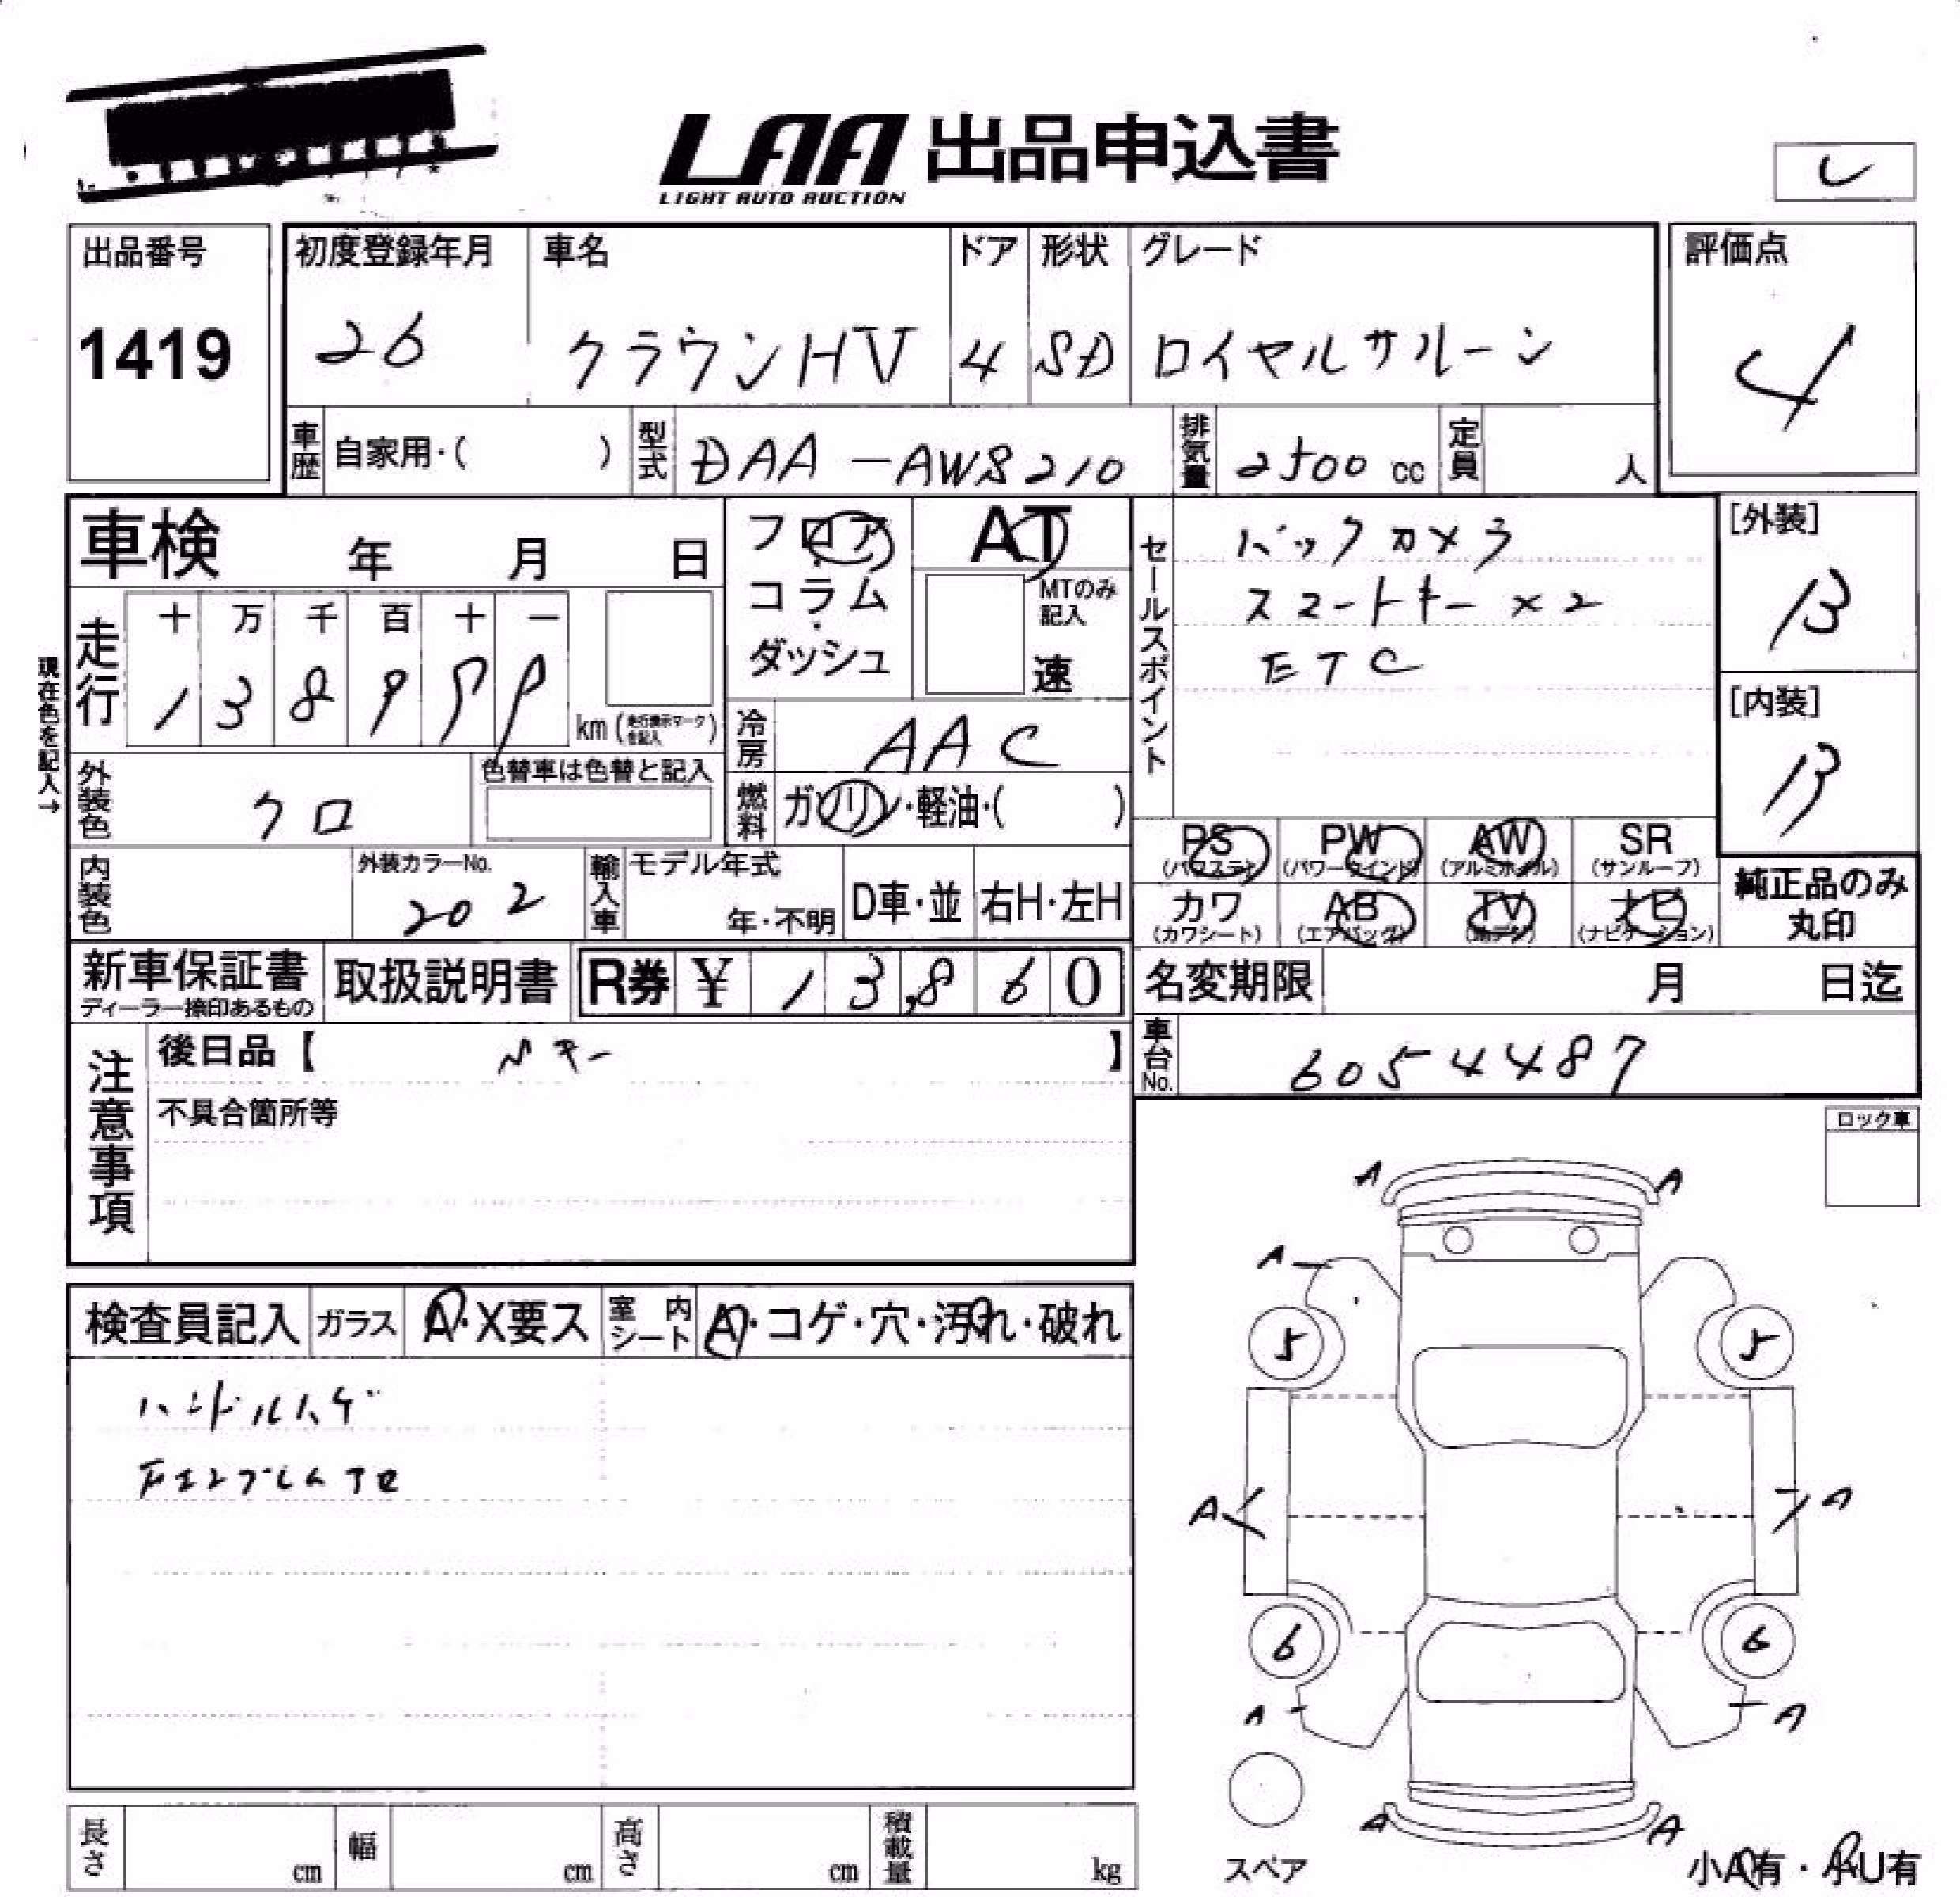 LAA 出品申込書
LIGHT AUTO AUCTION
出品番号
1419
初度登録年月
26
車名
クラウンHV
ドア
4
形状
SD
グレード
ロイヤルサルーン
評価点
4
車歴 自家用・( )
型式 DAA-AWS210
排気量 2500 cc
定員 人
車検 年 月 日
フロア
コラム
ダッシュ
AT
MTのみ記入
速
セールスポイント
バックカメラ
スマートキー×2
ETC
[外装]
B
[内装]
B
現在色を記入→
走行
十 万 千 百 十 一
1 3 8 9
km (走行表示マークを記入)
冷房 AAC
外装色 クロ
色替車は色替と記入
燃料 ガソリン・軽油・( )
内装色
外装カラーNo.
202
輸入車
モデル年式
年・不明
D車・並
右H・左H
PS (パワステ)
PW (パワーウインド)
AW (アルミホイル)
SR (サンルーフ)
カワ (カワシート)
AB (エアバッグ)
TV
ナビ (ナビゲーション)
純正品のみ
丸印
新車保証書
ディーラー捺印あるもの
取扱説明書
R券 ¥ 13,860
名変期限 月 日迄
注意事項
後日品【 】
不具合箇所等
車台No. 6054487
ロック車
検査員記入
ガラス A・X要ス
室内シート A・コゲ・穴・汚れ・破れ
ハンドルハゲ
A A
A
5 5
A A
6 6
A A
A A
スペア
小A有・小U有
長さ cm
幅 cm
高さ cm
積載量 kg